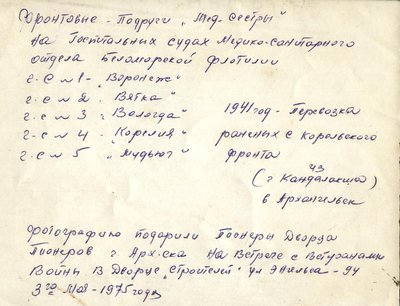 Фронтовые - Подруги "Мед-Сестры"
на Госпитальных судах Медико-санитарного
отдела Беломорской флотилии
г-с № 1 - "Воронеж"
г-с № 2 "Вятка"
г-с № 3 "Вологда"
г-с № 4 - "Корелия"
г-с № 5 "Мудьюг"
1941 год - Перевозка
раненых с Корельского
фронта
из
(г Кандалакши)
в Архангельск
Фотографию подарили Пионеры Дворца
Пионеров г Арх-ска на Встрече с Ветеранами
Войны В Дворце "Строителей" ул Энгельса - 94
3го Мая - 1975 года